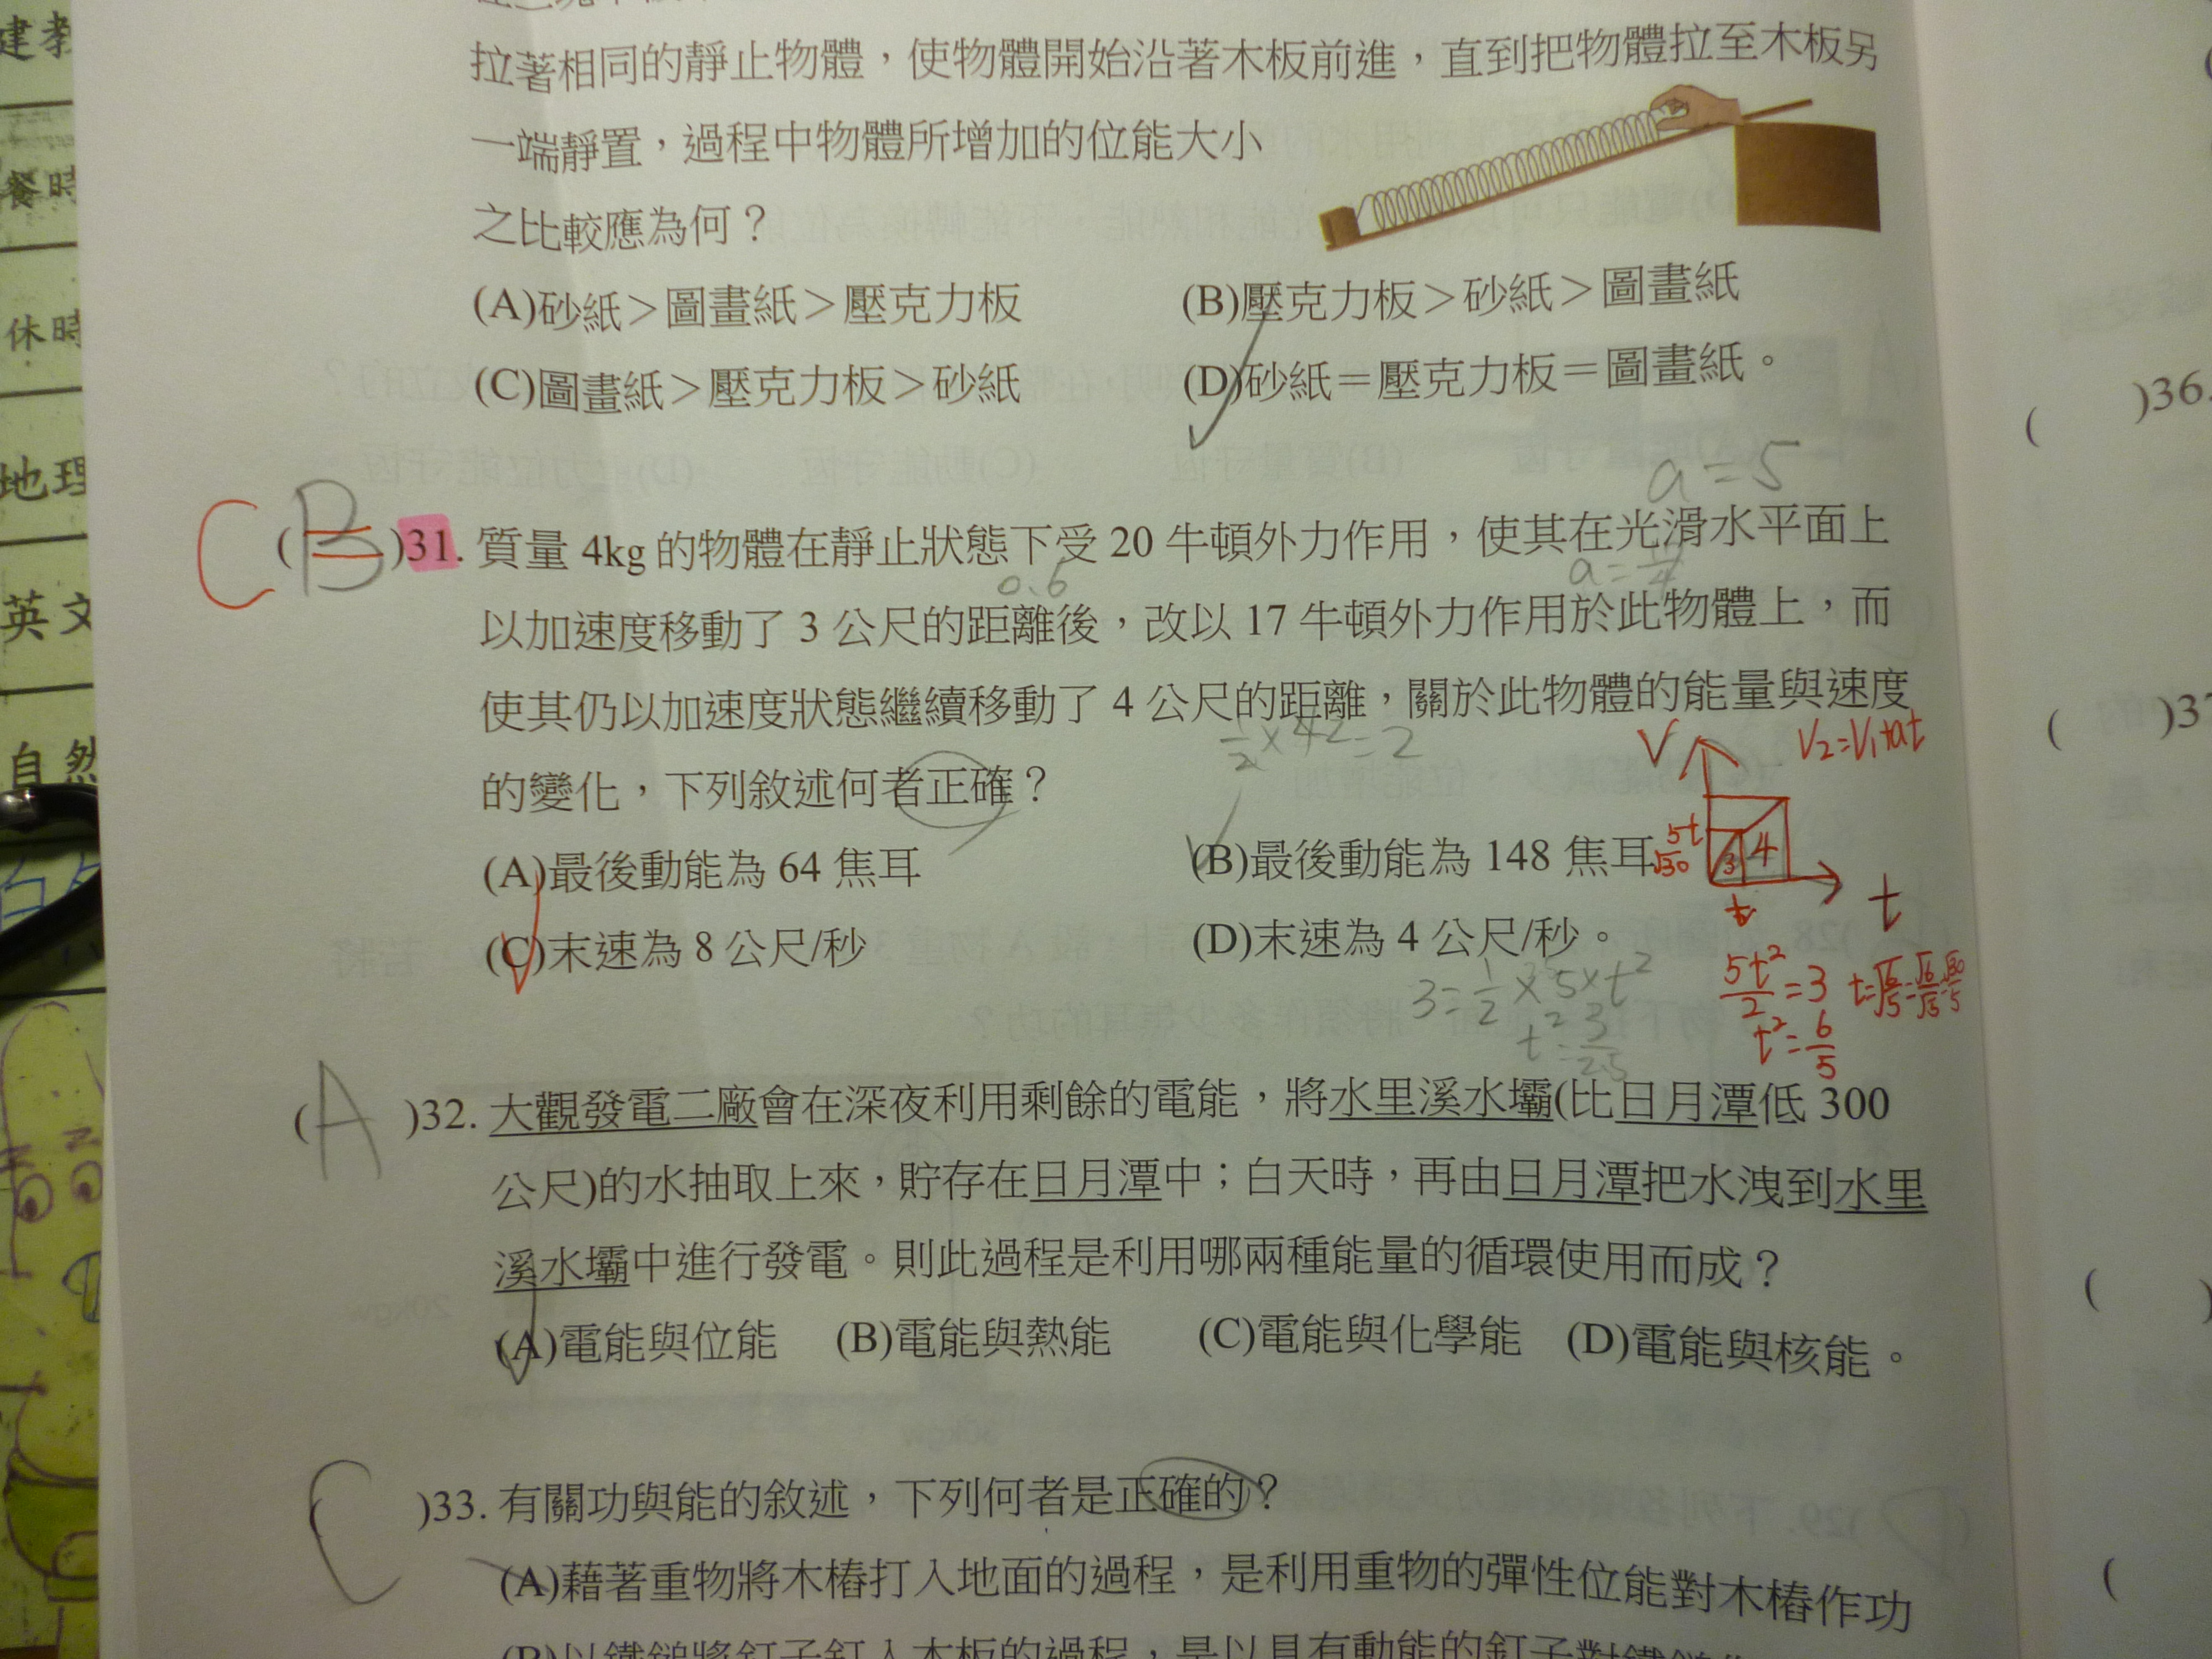 建教
餐時
休時
地理
英文
自然
拉著相同的靜止物體，使物體開始沿著木板前進，直到把物體拉至木板另
一端靜置，過程中物體所增加的位能大小
之比較應為何？
(A)砂紙＞圖畫紙＞壓克力板 (B)壓克力板＞砂紙＞圖畫紙
(C)圖畫紙＞壓克力板＞砂紙 (D)砂紙＝壓克力板＝圖畫紙。
a=5
C (B)31. 質量 4kg 的物體在靜止狀態下受 20 牛頓外力作用，使其在光滑水平面上
0.6
以加速度移動了 3 公尺的距離後，改以 17 牛頓外力作用於此物體上，而
使其仍以加速度狀態繼續移動了 4 公尺的距離，關於此物體的能量與速度
V V₂=V₁+at
的變化，下列敘述何者正確？
(A)最後動能為 64 焦耳 (B)最後動能為 148 焦耳
5t
√30
3 4
t
t
(C)末速為 8 公尺/秒 (D)末速為 4 公尺/秒。
3=1/2×5×t²
t²=3/2.5
5t²/2=3
t²=6/5
(A)32. 大觀發電二廠會在深夜利用剩餘的電能，將水里溪水壩(比日月潭低 300
公尺)的水抽取上來，貯存在日月潭中；白天時，再由日月潭把水洩到水里
溪水壩中進行發電。則此過程是利用哪兩種能量的循環使用而成？
(A)電能與位能 (B)電能與熱能 (C)電能與化學能 (D)電能與核能。
(C)33. 有關功與能的敘述，下列何者是正確的？
(A)藉著重物將木樁打入地面的過程，是利用重物的彈性位能對木樁作功
(B)以鐵鎚將釘子釘入木板的過程，是以具有動能的釘子對鐵鎚作
)36.
)37